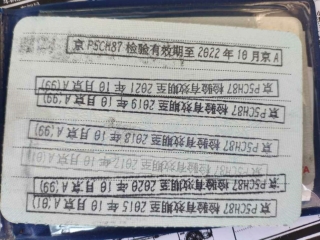 京PSCH87 检验有效期至2022年10月京A
京PSCH87 检验有效期至2021年10月京A(99)
京PSCH87 检验有效期至2019年10月京A(99)
京PSCH87 检验有效期至2018年10月京A(99)
京PSCH87 检验有效期至2017年10月京A(01)
京PSCH87 检验有效期至2020年10月京A(99)
京PSCH87 检验有效期至2015年10月京A(01)